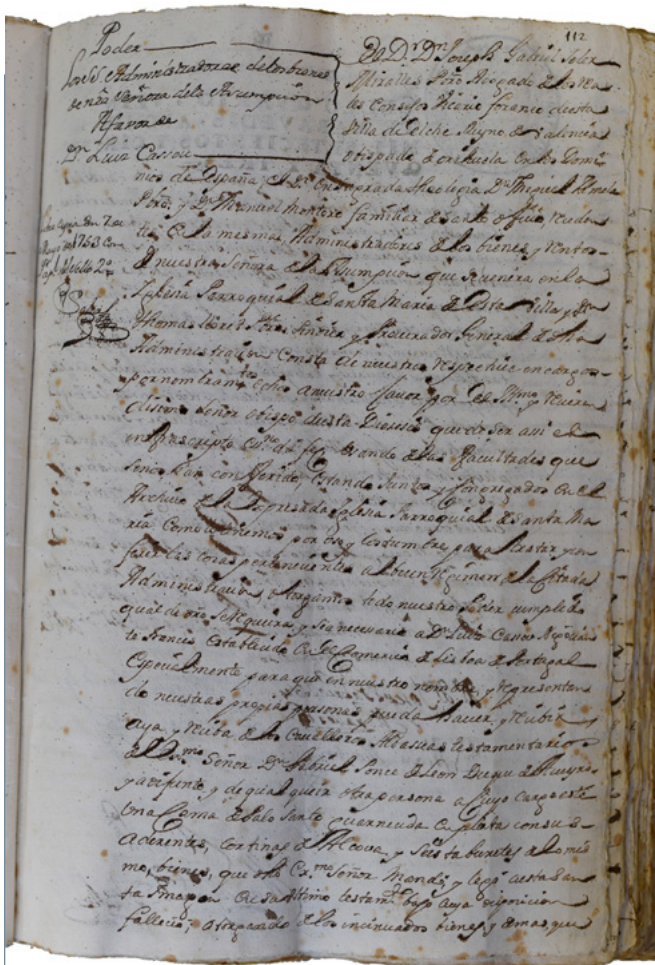 112
Poder
Los SS. Administradores delos bienes
de nra Señora dela Assumpcion
Afavor de
Dn. Luiz Cassou
El Dr. Dn. Joseph Gabriel Soler
Miralles Pbro Abogado de los Rea-
les Consejos Vicario foraneo de esta
Villa de Elche Reyno de Valencia
obispado de orihuela en los Domi-
nios de España, el Dr. en Sagrada Theologia Dn.
Pbro, y Dn. Manuel Montero familiar del Santo oficio, Veci-
nos de la mesma, Administradores de los bienes, y Rentas
de nuestra Señora de la Assumpcion que se venera en la
Iglesia Parroquial de Santa Maria de esta Villa, y Dn.
Thomas Pbro. Sindico y Procurador General de dha
Administracion Consta de nuestros respective encargos
por nombramto. echo a nuestro favor por el Illmo. y Reveren-
disimo Señor obispo de esta Diocesis que de ser assi el
infrascripto essno. da fee. Usando de las facultades que
senos han conferido, Estando Juntos, y Congregados en el
Archivo de la Expresada Iglesia Parroquial de Santa Ma-
ria Como lo tenemos por uso y costumbre, para tratar, y con-
ferir las cosas pertenecientes al buen regimen de la Citada
Administracion, otorgamos todo nuestro Poder cumplido
qual de dro. se Requiera, y sea necesario a Dn. Luiz Cassou Negocian-
te Frances Establecido en el Comercio de Lisboa de Portugal
Especialmente para que en nuestro nombre, y Representan-
do nuestras propias personas pueda haver, y Recibir
aya, y Reciba de los Cavalleros Albaseas testamentarios
del Exmo. Señor Dn. Gabriel Ponce de Leon Duque de Aveyro
ya difunto, y de qualquiera otra persona a cuyo cargo esté
Una Cama de Palo Santo guarnecida en plata con sus
aderentes, Cortinas de Alcova, y Seis taburetes de lo mis-
mo, bienes, que dho Exmo. Señor Mandó, y legó a esta San-
ta Imagen en su ultimo testamto. bajo cuya disposicion
fallecio; otorgando de los incinuados bienes, y demas, que